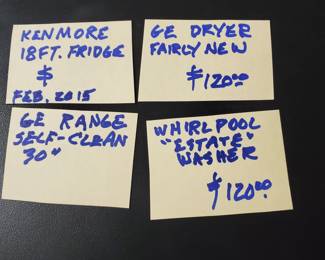 KENMORE
18FT. FRIDGE
$
FEB. 2015
GE DRYER
FAIRLY NEW
$120.00
GE RANGE
SELF-CLEAN
30"
WHIRLPOOL
"ESTATE"
WASHER
$120.00